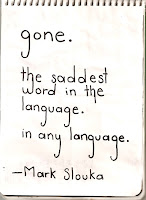 gone.
the saddest
word in the
language.
in any language.
—Mark Slouka